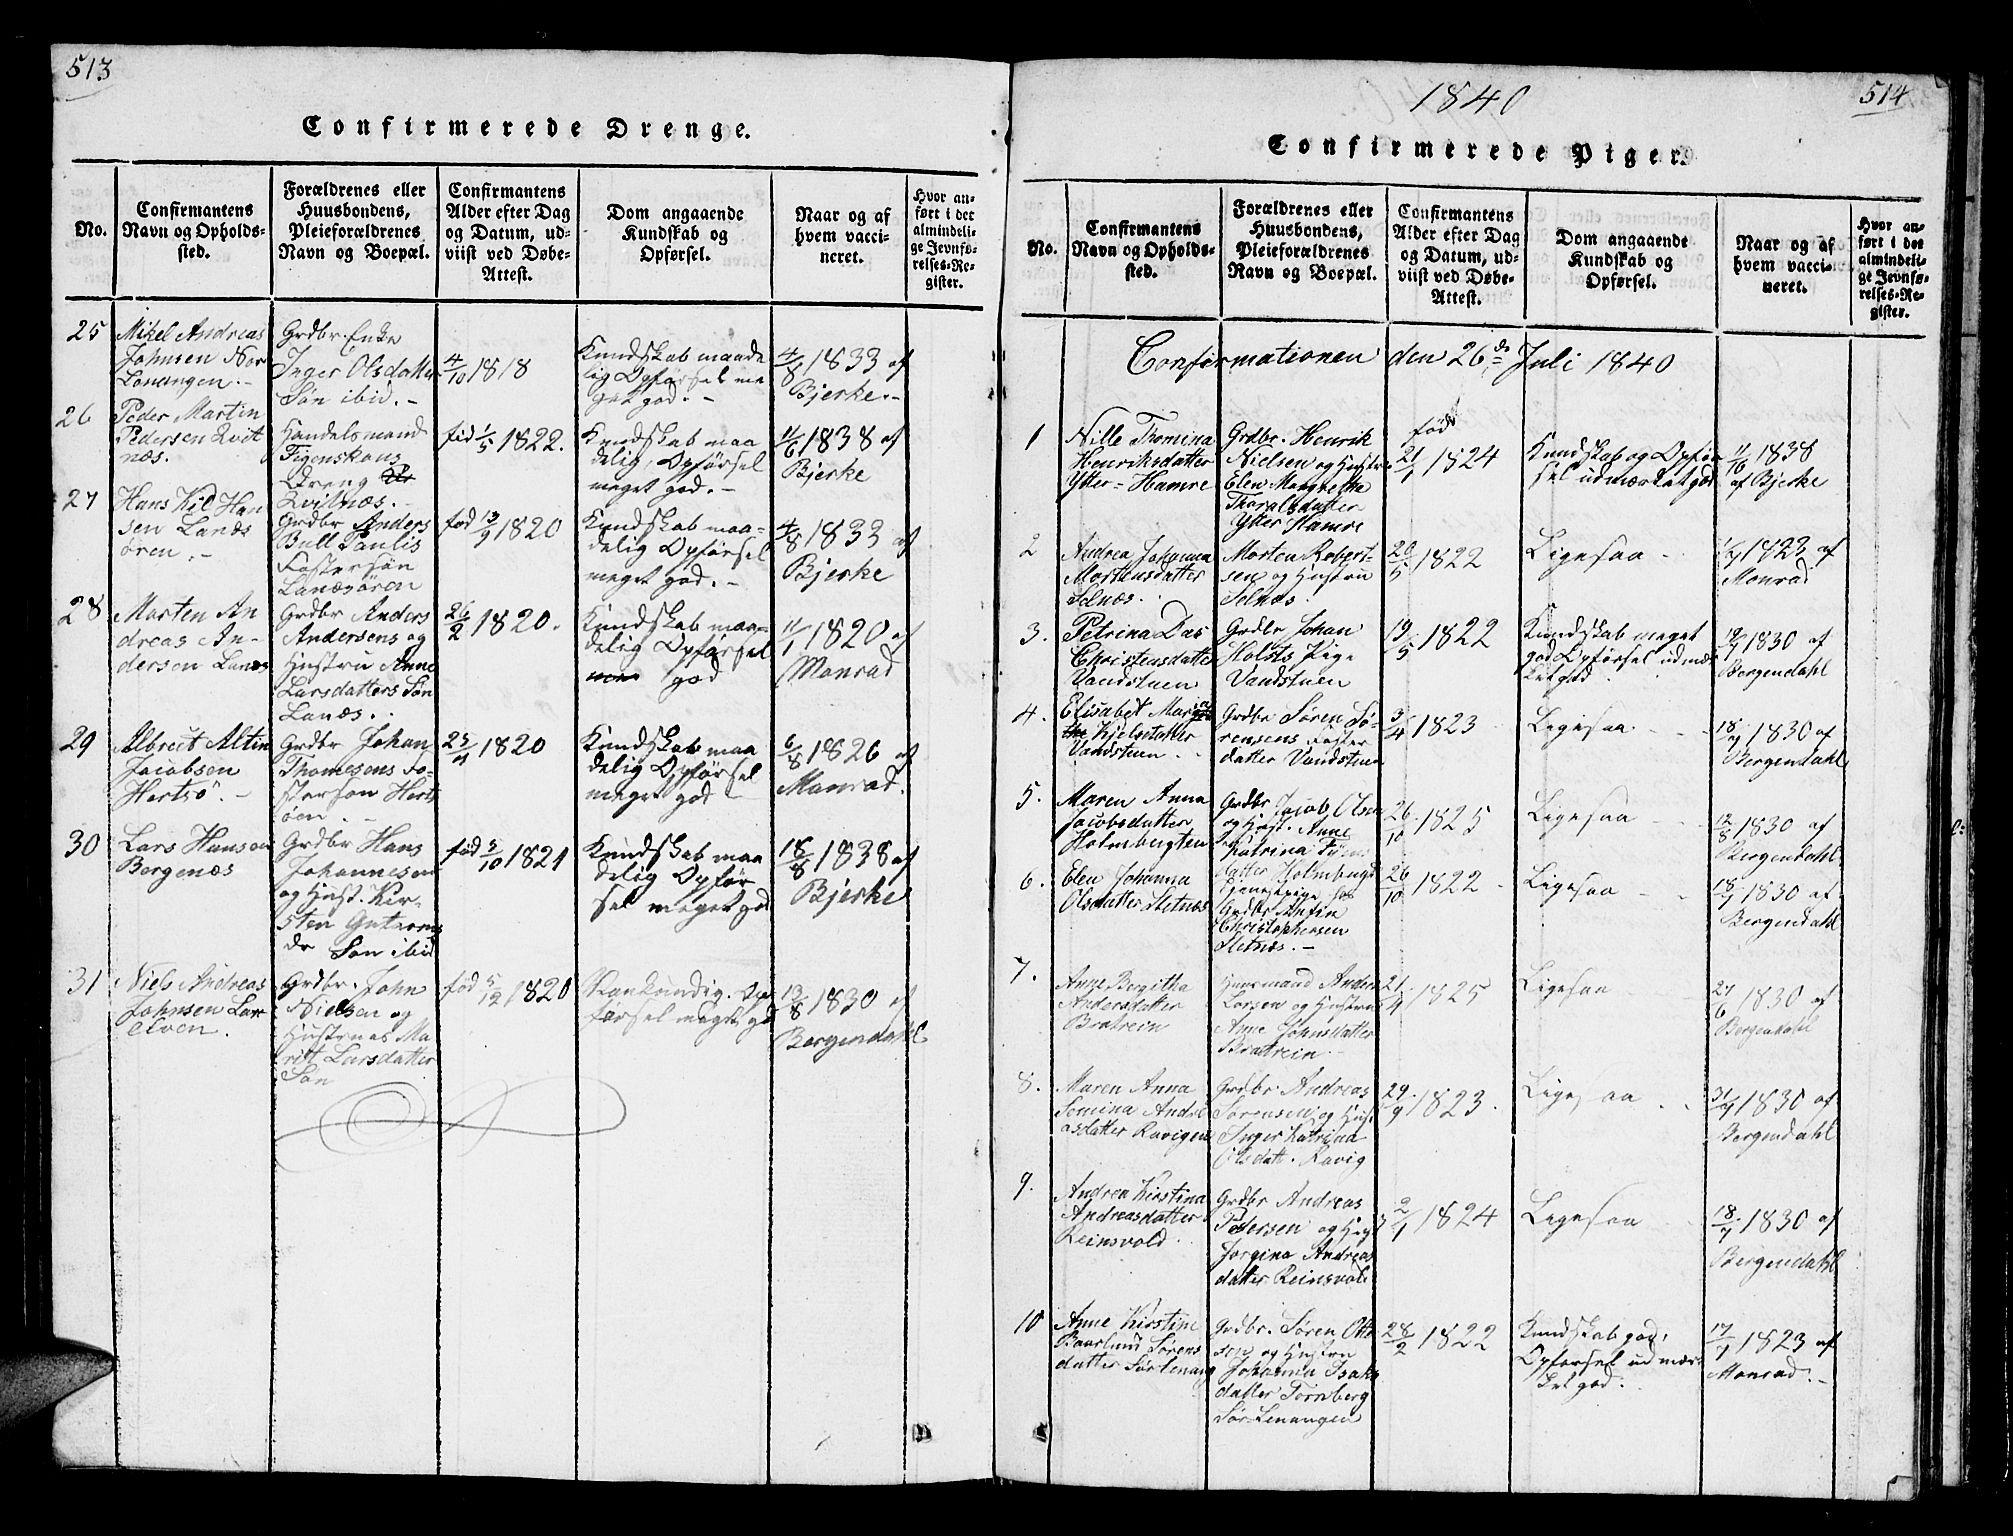 513
Confirmerede Drenge.
No.
Confirmantens
Navn og Opholds-
sted.
Forældrenes eller
Huusbondens,
Pleieforældrenes
Navn og Boepæl.
Confirmantens
Alder efter Dag
og Datum, ud-
viist ved Døbe-
Attest.
Dom angaaende
Kundskab og
Opførsel.
Naar og af
hvem vacci-
neret.
Hvor an-
ført i det
almindeli-
ge Jevnfø-
relses-Re-
gister.
25
Mikel Andreas
Johnsen Nor
Lenangen.-
Grdbr. Enke
Inger Olsdatter
Søn ibid.-
4/10 1818
Kundskab maade
lig Opførsel me
get god.-
4/8 1833 af
Bjerke.-
26
Peder Martin
Pedersen Qvit
næs.
Handelsmand
Figenskous
Dreng
Qvitnæs.-
fød 1/5 1822.
Kundskab maa
delig, Opførsel
meget god.-
11/6 1838 af
Bjerke
27
Hans Kil Han
sen Lanæs
ören.-
Grdbr Anders
Bull Paulis
Fostersøn
Lanæsören
fød 13/9 1820
Kundskab maa-
delig Opførsel
meget god.-
4/8 1833 af
Bjerke
28
Morten An
dreas An-
dersen Lanæs
Grdbr Anders
Andersens og
Hustru Anne
Larsdatters Søn
Lanæs.
26/2 1820.
Kundskab maa-
delig Opførsel
god
11/1 1820 af
Monrad
29
Albrect Altin
Jacobsen
Hertsö.-
Grdbr Johan
Thomesens Fo-
stersøn Herts
öen.-
1820
Kundskab maa
delig Opførsel
meget god
6/8 1826 af
Monrad.
30
Lars Hansen
Bergenæs
Grdbr Hans
Johannesen
og Hust. Kir-
sten Gutorms
dr Søn ibid
fød 3/10 1821
Kundskab maa
delig Opfør
sel meget god
18/8 1838 af
Bjerke
31
Niels Andreas
Johnsen Lar
elven.
Grdbr. John
Nielsen og
Hustrues Ma
rit Larsdatter
Søn
fød 5/12 1820
Opførsel meget god
13/8 1830 af
Bergendahl
1840
514
Confirmerede Piger.
No.
Confirmantens
Navn og Opholds-
sted.
Forældrenes eller
Huusbondens,
Pleieforældrenes
Navn og Boepæl.
Confirmantens
Alder efter Dag
og Datum, ud-
viist ved Døbe-
Attest.
Dom angaaende
Kundskab og
Opførsel.
Naar og af
hvem vacci-
neret.
Hvor an-
ført i det
almindeli-
ge Jevnfø-
relses-Re-
gister.
Confirmationen den 26de Juli 1840
1
Nille Thomina
Henriksdatter
Ytter-Hamre
Grdbr. Henrik
Nielsen og Hustru
Elen Margrethe
Tharalsdatter
Ytter Hamre
fød
21/1 1824
Kundskab og Opfør
sel udmærket god
11/6 1838
af Bjerke
2
Andrea Johanna
Mortensdatter
Selnæs.
Morten Robert-
sen og Hustru
Selnæs.
20/5 1822
Ligesaa -
1823 af
Monrad
3.
Petrina Das
Christensdatter
Vandstuen
Grdbr Johan
Holsts Pige
Vandstuen
19/5 1822
Kundskab meget
god Opførsel udmær
ket god
1830 af
Bergendahl
4.
Elisabet Maria
Kjelsdatter
Vandstuen
Grdbr Søren Sø-
rensens Foster
datter Vandstuen
3/4 1823
Ligesaa.
18/7 1830 af
Bergendahl
5.
Maren Anna
Jacobsdatter
Holmbergten
Grdbr Jacob Olsen
og Hust. Anne
Katrina
datter
26/10 1825
Ligesaa
12/8 1830 af
Bergendahl
6.
Elen Johanna
Olsdatter Sletnæs
Tjenestpige hos
Grdbr Anfin
Christophersen
Sletnæs.-
26/10 1822
Ligesaa
18/7 1830 af
Bergendahl
7.
Anne Bergitha
Andersdatter
Bratrein
Huusmand Anders
Larsen og Hustru
Anne Johnsdatter
Bratrein.
21/4 1825
Ligesaa
27/6 1830 af
Bergendahl
8.
Maren Anna
Semina Andre
asdatter Ravigen
Grdbr. Andreas
Sørensen og Hust
Inger Katrina
Olsdatt. Ravig
29/9 1823.
Ligesaa
31/7 1830 af
Bergendahl
9.
Andrea Kirstina
Andreasdatter
Reinsvold
Grdbr Andreas
Pedersen og Hust
Jorgina Andreas
datter Reinsvold
2/1 1824
Ligesaa
18/7 1830 af
Bergendahl
10
Anne Kirstine
Baarlund Sørens
datter Sørlenang
Grdbr. Søren Otte
sen og Hustru
Johanna Isaks
datter Tornberg
Sør-Lenangen
28/2 1822
Kundskab god,
Opførsel udmær
ket god.
17/7 1823 af
Monrad.-